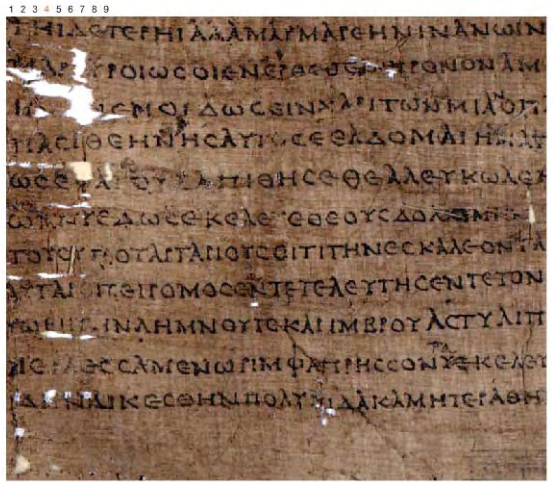 1 2 3 4 5 6 7 8 9
ΤΗΙΔΕΤΕΡΗΙΑΛΑΜΑΡΜΑΡΕΗΝΙΝΑΝΩΙΝ
ΡΟΙΩϹΟΙΕΝΕΡΘΕΘΕ ΚΡΟΝΟΝΑΜ
ΕΜΟΙΔΩϹΕΙΝΧΑΡΙΤΩΝΜΙΑΝΟΠ
ΠΑϹΙΘΕΗΝΗϹΑΥΤ ϹΕΕΛΔΟΜΑΙΗ
ΩϹΕΦΑΤΟΥΔΑΠΙΘΗϹΕΘΕΑΛΕΥΚΩΛΕΝ
ΩΜΝΥΕΔΩϹΕΚΕΛΕΥΕΘΕΟΥϹΔΟΝΟΜΗ
ΤΟΥϹΥΠΟΤΑΡΤΑΡΙΟΥϹΟΙΤΙΤΗΝΕϹΚΑΛΕΟΝΤΑ
ΑΥΤΑΡΕΠΕΙΡΟΜΟϹΕΝΤΕΤΕΛΕΥΤΗϹΕΝΤΕΤΟΝ
ΤΩΒΗΤΗΝΛΗΜΝΟΥΤΕΚΑΙΙΜΒΡΟΥΑϹΤΥΛΙΠ
ΗΕΡΑΕϹϹΑΜΕΝΩΡΙΜΦΑΠΡΗϹϹΟΝΤΕΚΕΛΕΥ
ΙΔΗΝΔΙΚΕϹΘΗΝΠΟΛΥΠΙΔΑΚΑΜΗΤΕΡΑΘΗ